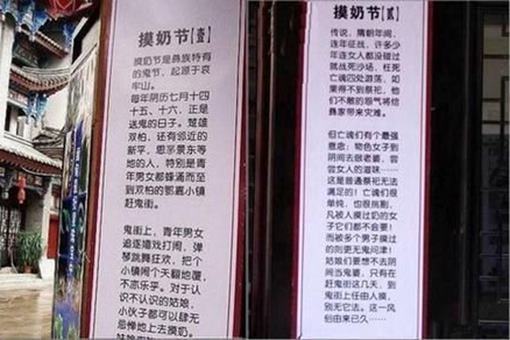 摸奶节【壹】
摸奶节是彝族特有
的鬼节,起源于哀
牢山。
每年阴历七月十四
十五、十六,正是
送鬼的日子。楚雄
双柏,还有邻近的
新平,思茅景东等
地的人,特别是青
年男女都蜂涌而至
到双柏的鄂嘉小镇
赶鬼街。
鬼街上,青年男女
追逐嬉戏打闹,弹
琴跳舞狂欢,把个
小镇闹个天翻地覆,
不亦乐乎。对于认
识不认识的姑娘,
小伙子都可以肆无
忌惮地上去摸奶。
摸奶节【贰】
传说,隋朝年间,
连年征战,许多少
年连女人都没碰过
就战死沙场,枉死
亡魂四处游荡,如
果得不到祭祀,他
们不散的怨气将给
彝家带来灾难。
但亡魂们有个最强
意念:物色女子到
阴间去做老婆,尝
尝女人的滋味……
这是普通祭祀无法
满足的!亡魂们很
单纯,也很挑剔,
凡被人摸过奶的女
子它们都不会要!
而被多个男子摸过
的则更无鬼问津!
姑娘们要想不去阴
间当鬼妻,只有在
赶鬼街这几天,到
鬼街上任由人摸,
别无它法。这一风
俗由来已久……